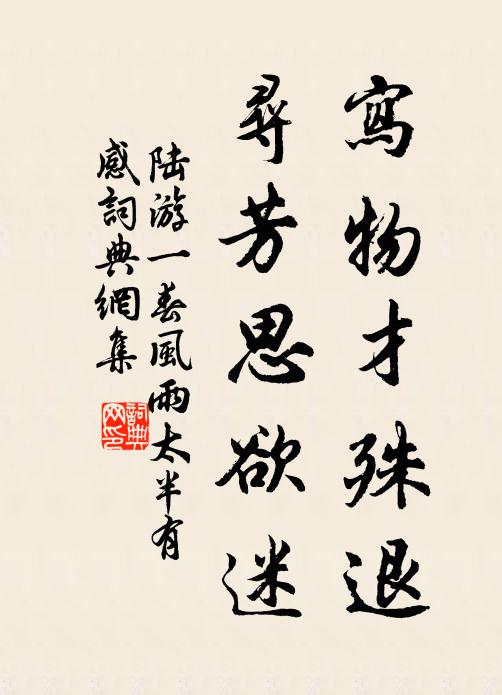 寫物才殊退
尋芳思欲迷
陆游一春風雨太半有
感詞典網集
詞典网印